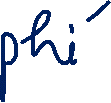 phí